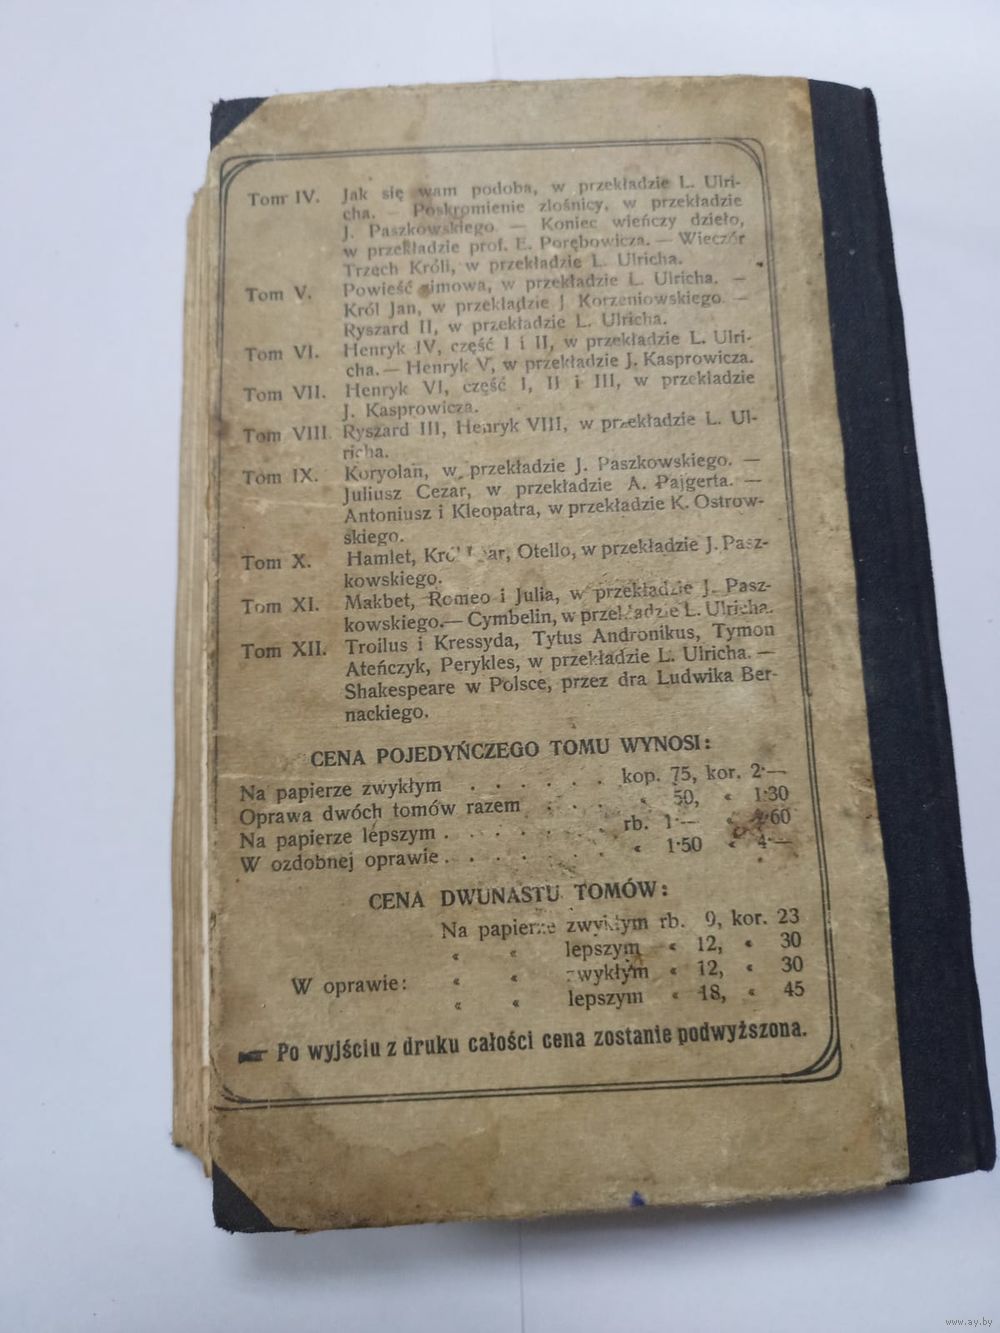 Tom IV. Jak się wam podoba, w przekładzie L. Ulri-
cha. — Poskromienie złośnicy, w przekładzie
J. Paszkowskiego. — Koniec wieńczy dzieło,
w przekładzie prof. E. Porębowicza. — Wieczór
Trzech Króli, w przekładzie L. Ulricha.
Tom V. Powieść zimowa, w przekładzie L. Ulricha. —
Król Jan, w przekładzie J Korzeniowskiego. —
Ryszard II, w przekładzie L. Ulricha.
Tom VI. Henryk IV, część I i II, w przekładzie L. Ulri-
cha. — Henryk V, w przekładzie J. Kasprowicza.
Tom VII. Henryk VI, część I, II i III, w przekładzie
J. Kasprowicza.
Tom VIII. Ryszard III, Henryk VIII, w przekładzie L. Ul-
richa.
Tom IX. Koryolan, w przekładzie J. Paszkowskiego. —
Juliusz Cezar, w przekładzie A. Pajgerta. —
Antoniusz i Kleopatra, w przekładzie K. Ostrow-
skiego.
Tom X. Hamlet, Król Lear, Otello, w przekładzie J. Pasz-
kowskiego.
Tom XI. Makbet, Romeo i Julia, w przekładzie J. Pasz-
kowskiego. — Cymbelin, w przekładzie L. Ulricha.
Tom XII. Troilus i Kressyda, Tytus Andronikus, Tymon
Ateńczyk, Perykles, w przekładzie L. Ulricha. —
Shakespeare w Polsce, przez dra Ludwika Ber-
nackiego.
CENA POJEDYŃCZEGO TOMU WYNOSI:
Na papierze zwykłym . . . . . . kop. 75, kor. 2·—
Oprawa dwóch tomów razem . . . « 50, « 1·30
Na papierze lepszym . . . . . . rb. 1·— « 2·60
W ozdobnej oprawie . . . . . . « 1·50 « 4·—
CENA DWUNASTU TOMÓW:
Na papierze zwykłym rb. 9, kor. 23
« « lepszym « 12, « 30
W oprawie: « « zwykłym « 12, « 30
« « lepszym « 18, « 45
☛ Po wyjściu z druku całości cena zostanie podwyższona.
www.ay.by